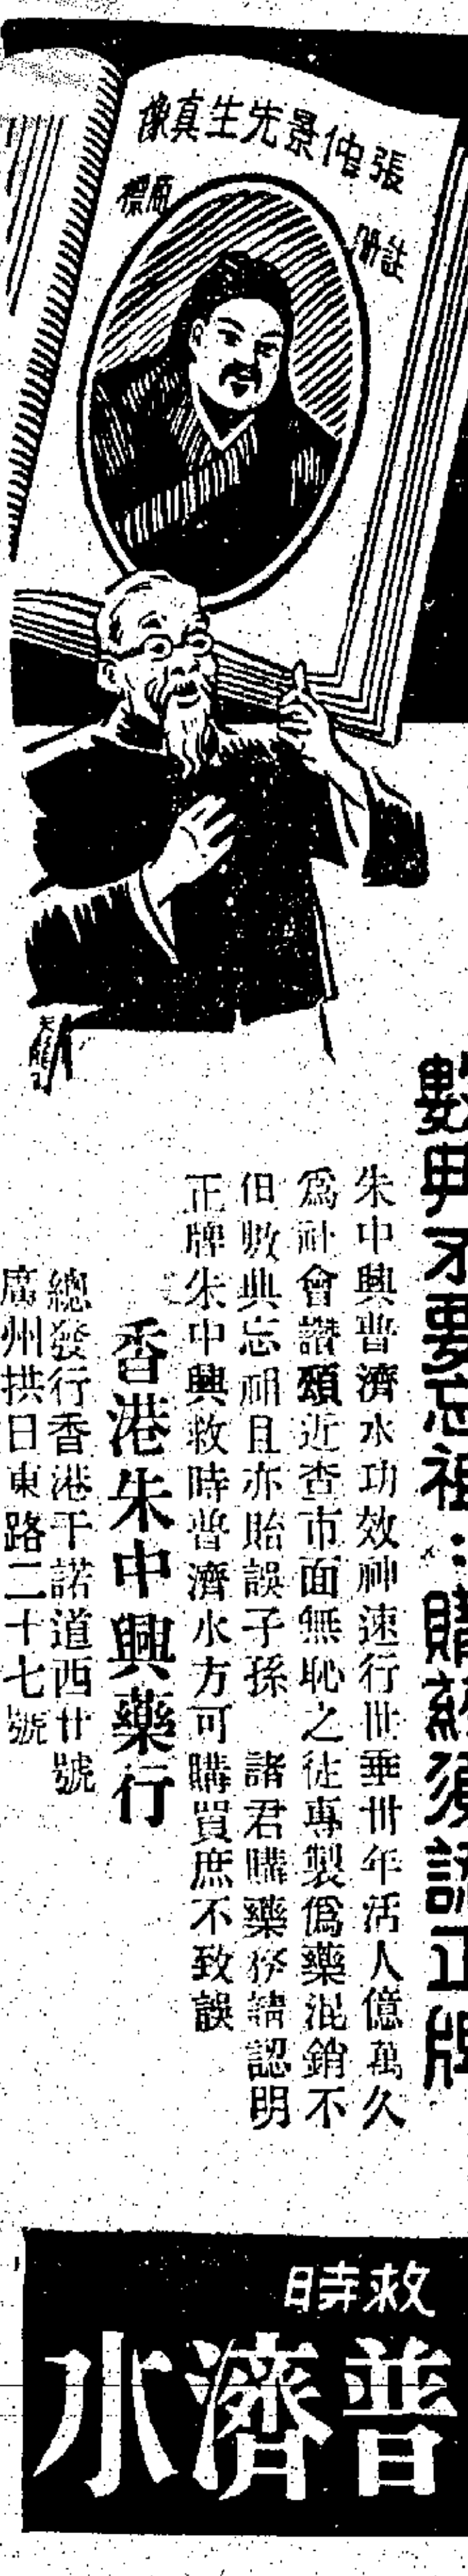 張仲景先生真像
註冊
原標
數典不要忘祖：購藥須認正牌
朱中興普濟水功效神速行世垂卅年活人億萬久
為社會讚頌近查市面無恥之徒專製偽藥混銷不
但數典忘祖且亦貽誤子孫　諸君購藥務請認明
正牌朱中興救時普濟水方可購買庶不致誤
香港朱中興藥行
總發行香港干諾道西廿號
廣州拱日東路二十七號
救時
普濟水